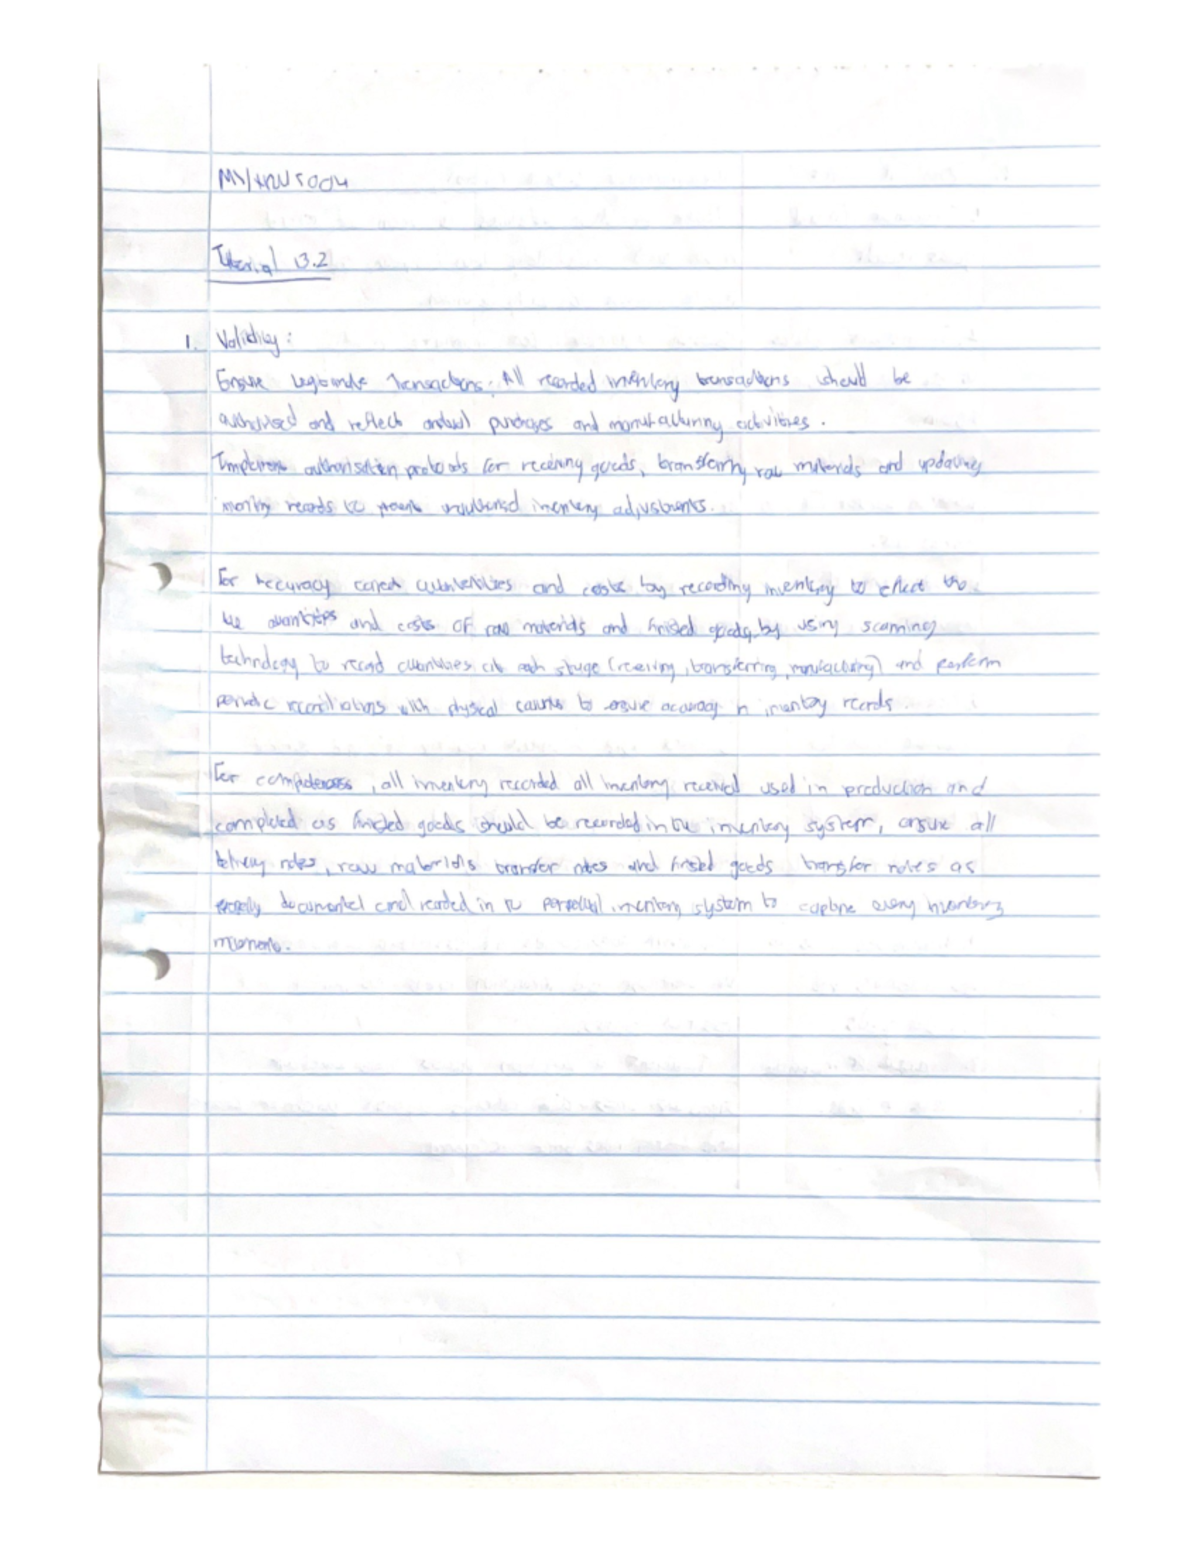 Tutorial 13.2
1. Validity:
Ensure legitimate Transactions. All recorded inventory transactions should be
authorised and reflect actual purchases and manufacturing activities.
Implement authorisation protocols for receiving goods, transferring raw materials and updating
records to prevent inventory adjustments.
For Accuracy correct quantities and costs by recording inventory to reflect the
quantities and costs of raw materials and finished goods by using scanning
technology to record quantities at each stage (receiving, transferring, manufacturing) and perform
periodic reconciliations with physical counts to ensure accuracy in inventory records.
For completeness, all inventory recorded all inventory received used in production and
completed as finished goods should be recorded in the inventory system, ensure all
delivery notes, raw materials transfer notes and finished goods transfer notes as
documented and recorded in the perpetual inventory system to capture every inventory